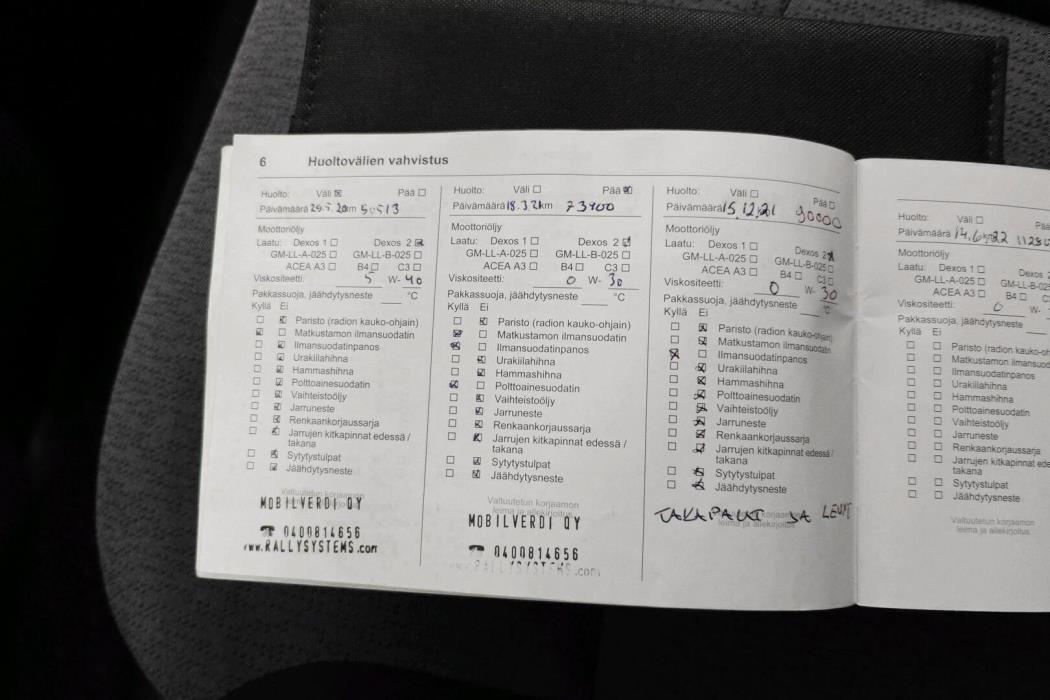 6 Huoltovälien vahvistus
Huolto: Väli ☒ Pää ☐
Päivämäärä 20 km 50513
Moottoriöljy
Laatu: Dexos 1 ☐ Dexos 2 ☒
GM-LL-A-025 ☐ GM-LL-B-025 ☐
ACEA A3 ☐ B4 ☐ C3 ☐
Viskositeetti: 5 W- 40
Pakkassuoja, jäähdytysneste ____ °C
Kyllä Ei
☐ ☒ Paristo (radion kauko-ohjain)
☒ ☐ Matkustamon ilmansuodatin
☐ ☒ Ilmansuodatinpanos
☐ ☒ Urakiilahihna
☐ ☒ Hammashihna
☐ ☒ Polttoainesuodatin
☐ ☒ Vaihteistoöljy
☐ ☒ Jarruneste
☐ ☒ Renkaankorjaussarja
☐ ☒ Jarrujen kitkapinnat edessä /
takana
☐ ☒ Sytytystulpat
☐ ☒ Jäähdytysneste
Valtuutetun korjaamon
MOBILVERDI OY
☎ 0400814656
www.RALLYSYSTEMS.com
Huolto: Väli ☐ Pää ☒
Päivämäärä 18.3.21 km 73400
Moottoriöljy
Laatu: Dexos 1 ☐ Dexos 2 ☒
GM-LL-A-025 ☐ GM-LL-B-025 ☐
ACEA A3 ☐ B4 ☐ C3 ☐
Viskositeetti: 0 W- 30
Pakkassuoja, jäähdytysneste ____ °C
Kyllä Ei
☐ ☒ Paristo (radion kauko-ohjain)
☒ ☐ Matkustamon ilmansuodatin
☒ ☐ Ilmansuodatinpanos
☐ ☒ Urakiilahihna
☐ ☒ Hammashihna
☒ ☐ Polttoainesuodatin
☐ ☒ Vaihteistoöljy
☐ ☒ Jarruneste
☐ ☒ Renkaankorjaussarja
☐ ☒ Jarrujen kitkapinnat edessä /
takana
☐ ☒ Sytytystulpat
☐ ☒ Jäähdytysneste
Valtuutetun korjaamon
leima ja allekirjoitus
MOBILVERDI OY
☎ 0400814656
www.RALLYSYSTEMS.com
Huolto: Väli ☐ Pää ☐
Päivämäärä 15.12.21 90000
Moottoriöljy
Laatu: Dexos 1 ☐ Dexos 2 ☒
GM-LL-A-025 ☐ GM-LL-B-025 ☐
ACEA A3 ☐ B4 ☐ C3 ☐
Viskositeetti: 0 W- 30
Pakkassuoja, jäähdytysneste ____ °C
Kyllä Ei
☐ ☒ Paristo (radion kauko-ohjain)
☐ ☒ Matkustamon ilmansuodatin
☒ ☐ Ilmansuodatinpanos
☐ ☒ Urakiilahihna
☐ ☒ Hammashihna
☐ ☒ Polttoainesuodatin
☐ ☒ Vaihteistoöljy
☐ ☒ Jarruneste
☐ ☒ Renkaankorjaussarja
☐ ☒ Jarrujen kitkapinnat edessä /
takana
☐ ☒ Sytytystulpat
☐ ☒ Jäähdytysneste
TAKAPALAT JA LEVYT
leima ja allekirjoitus
Huolto: Väli ☐
Päivämäärä 14.6.22
Moottoriöljy
Laatu: Dexos 1 ☐ Dexos 2
GM-LL-A-025 ☐ GM-LL-B-025
ACEA A3 ☐ B4 ☐ C3
Viskositeetti: 0 W-
Pakkassuoja, jäähdytysneste
Kyllä Ei
☐ ☐ Paristo (radion kauko-oh
☐ ☐ Matkustamon ilmansuod
☐ ☐ Ilmansuodatinpanos
☐ ☐ Urakiilahihna
☐ ☐ Hammashihna
☐ ☐ Polttoainesuodatin
☐ ☐ Vaihteistoöljy
☐ ☐ Jarruneste
☐ ☐ Renkaankorjaussarja
☐ ☐ Jarrujen kitkapinnat ede
takana
☐ ☐ Sytytystulpat
☐ ☐ Jäähdytysneste
Valtuutetun korjaamon
leima ja allekirjoitus